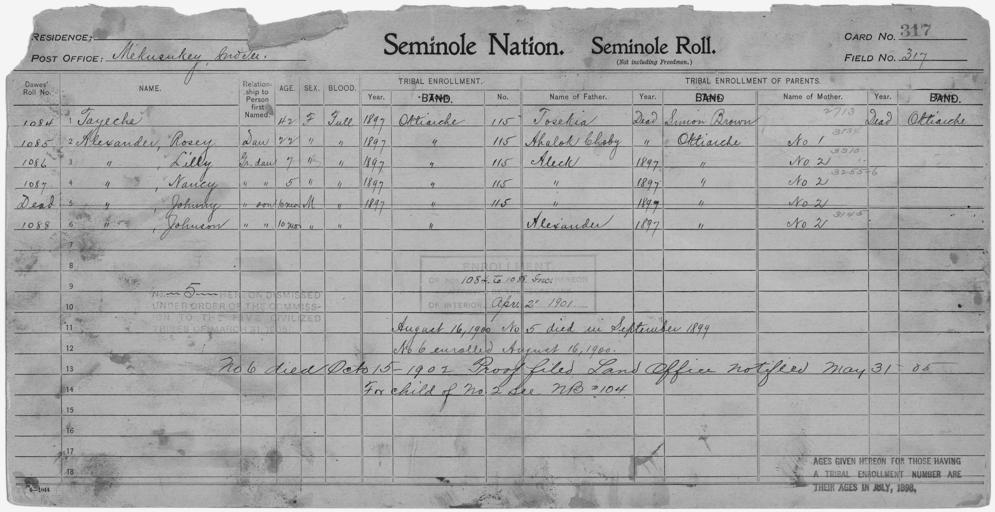 RESIDENCE:
POST OFFICE: Mekusukey, Ind. Ter.
Seminole Nation. Seminole Roll.
(Not including Freedmen.)
CARD NO. 317
FIELD NO. 317
Dawes' Roll No. NAME. Relationship to Person first Named. AGE. SEX. BLOOD. TRIBAL ENROLLMENT. TRIBAL ENROLLMENT OF PARENTS.
Year. BAND. No. Name of Father. Year. BAND Name of Mother. Year. BAND.
1084 1 Tayeche 42 F Full 1897 Ottiarche 115 Tosekia Dead Simon Brown 2713 Dead Ottiarche
1085 2 Alexander, Rosey Dau 22 " " 1897 " 115 Ahalok Choby " Ottiarche No 1
1086 3 " , Lilly Gr. dau 7 " " 1897 " 115 Aleck 1897 " No 2
1087 4 " , Nancy " " 5 " " 1897 " 115 " 1897 " No 2
Dead 5 " , Johnny " son 6 mos M " 1897 " 115 " 1897 " No 2
1088 6 " , Johnson " " 10 mos " " " Alexander 1897 " No 2
7
8
ENROLLMENT
9 1084 to 1088 Inc.
No. 5 HEREON DISMISSED
10 UNDER ORDER OF THE COMMISSION TO THE FIVE CIVILIZED TRIBES OF MARCH 31, 1905.
OF INTERIOR Apr 2 1901
11 August 16, 1900 No 5 died in September 1899
12 No 6 enrolled August 16, 1900.
13 No 6 died Oct 15-1902 Proof filed Land Office notified May 31-05
14 For child of No. 2 see NB #104
15
16
17
18
AGES GIVEN HEREON FOR THOSE HAVING
A TRIBAL ENROLLMENT NUMBER ARE
THEIR AGES IN JULY, 1898.